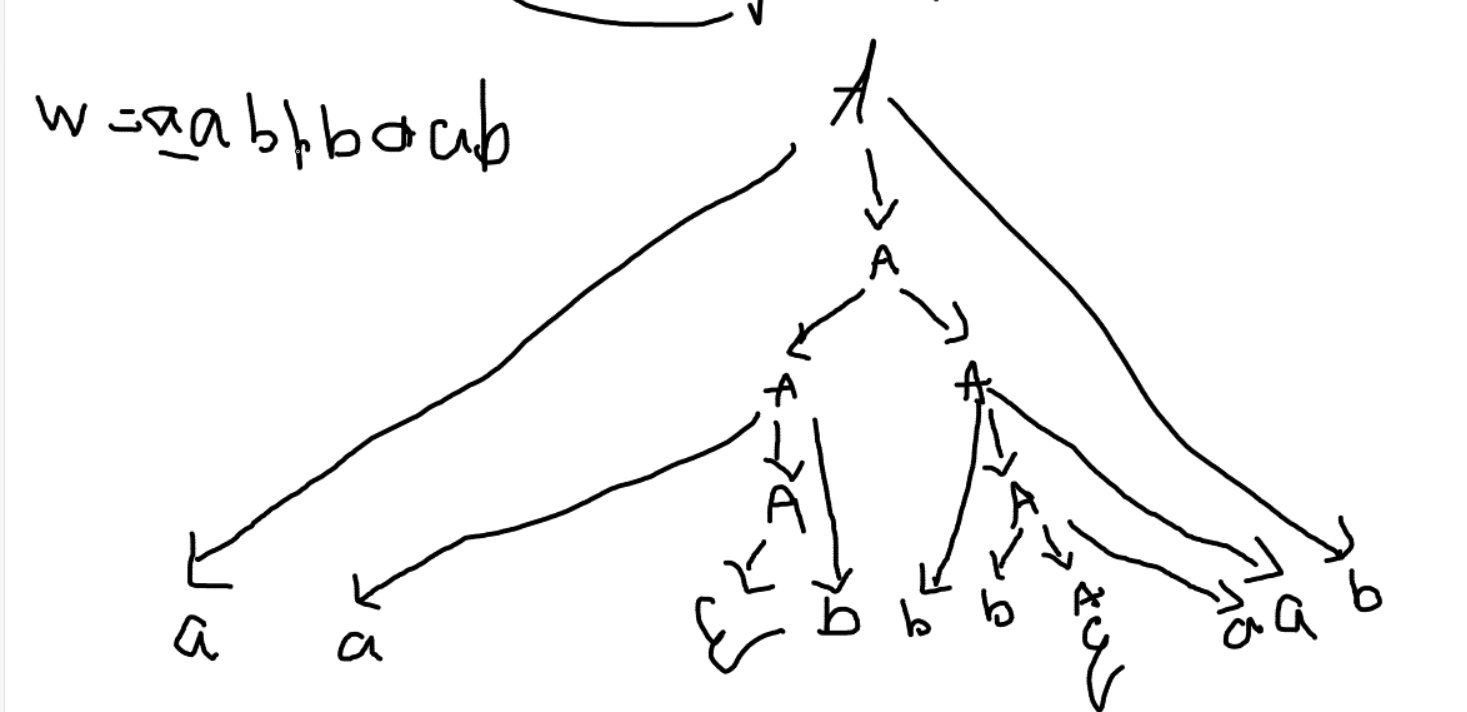 w = aabbbaab
A
A
A A
A A
a a ε b b b A a a b
ε